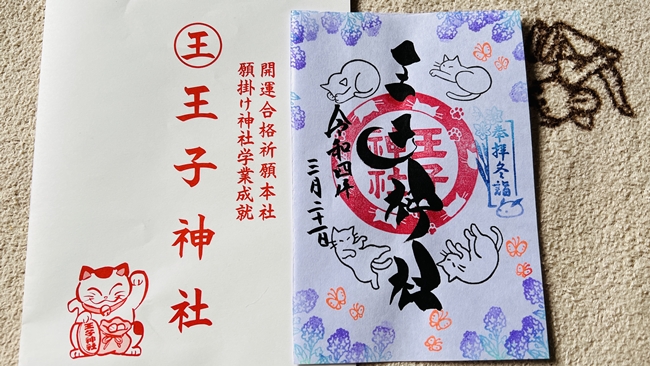 王
開運合格祈願本社
願掛け神社学業成就
王子神社
王子神社
王子神社
王子
神社
令和四年
三月二十一日
奉拝冬詣